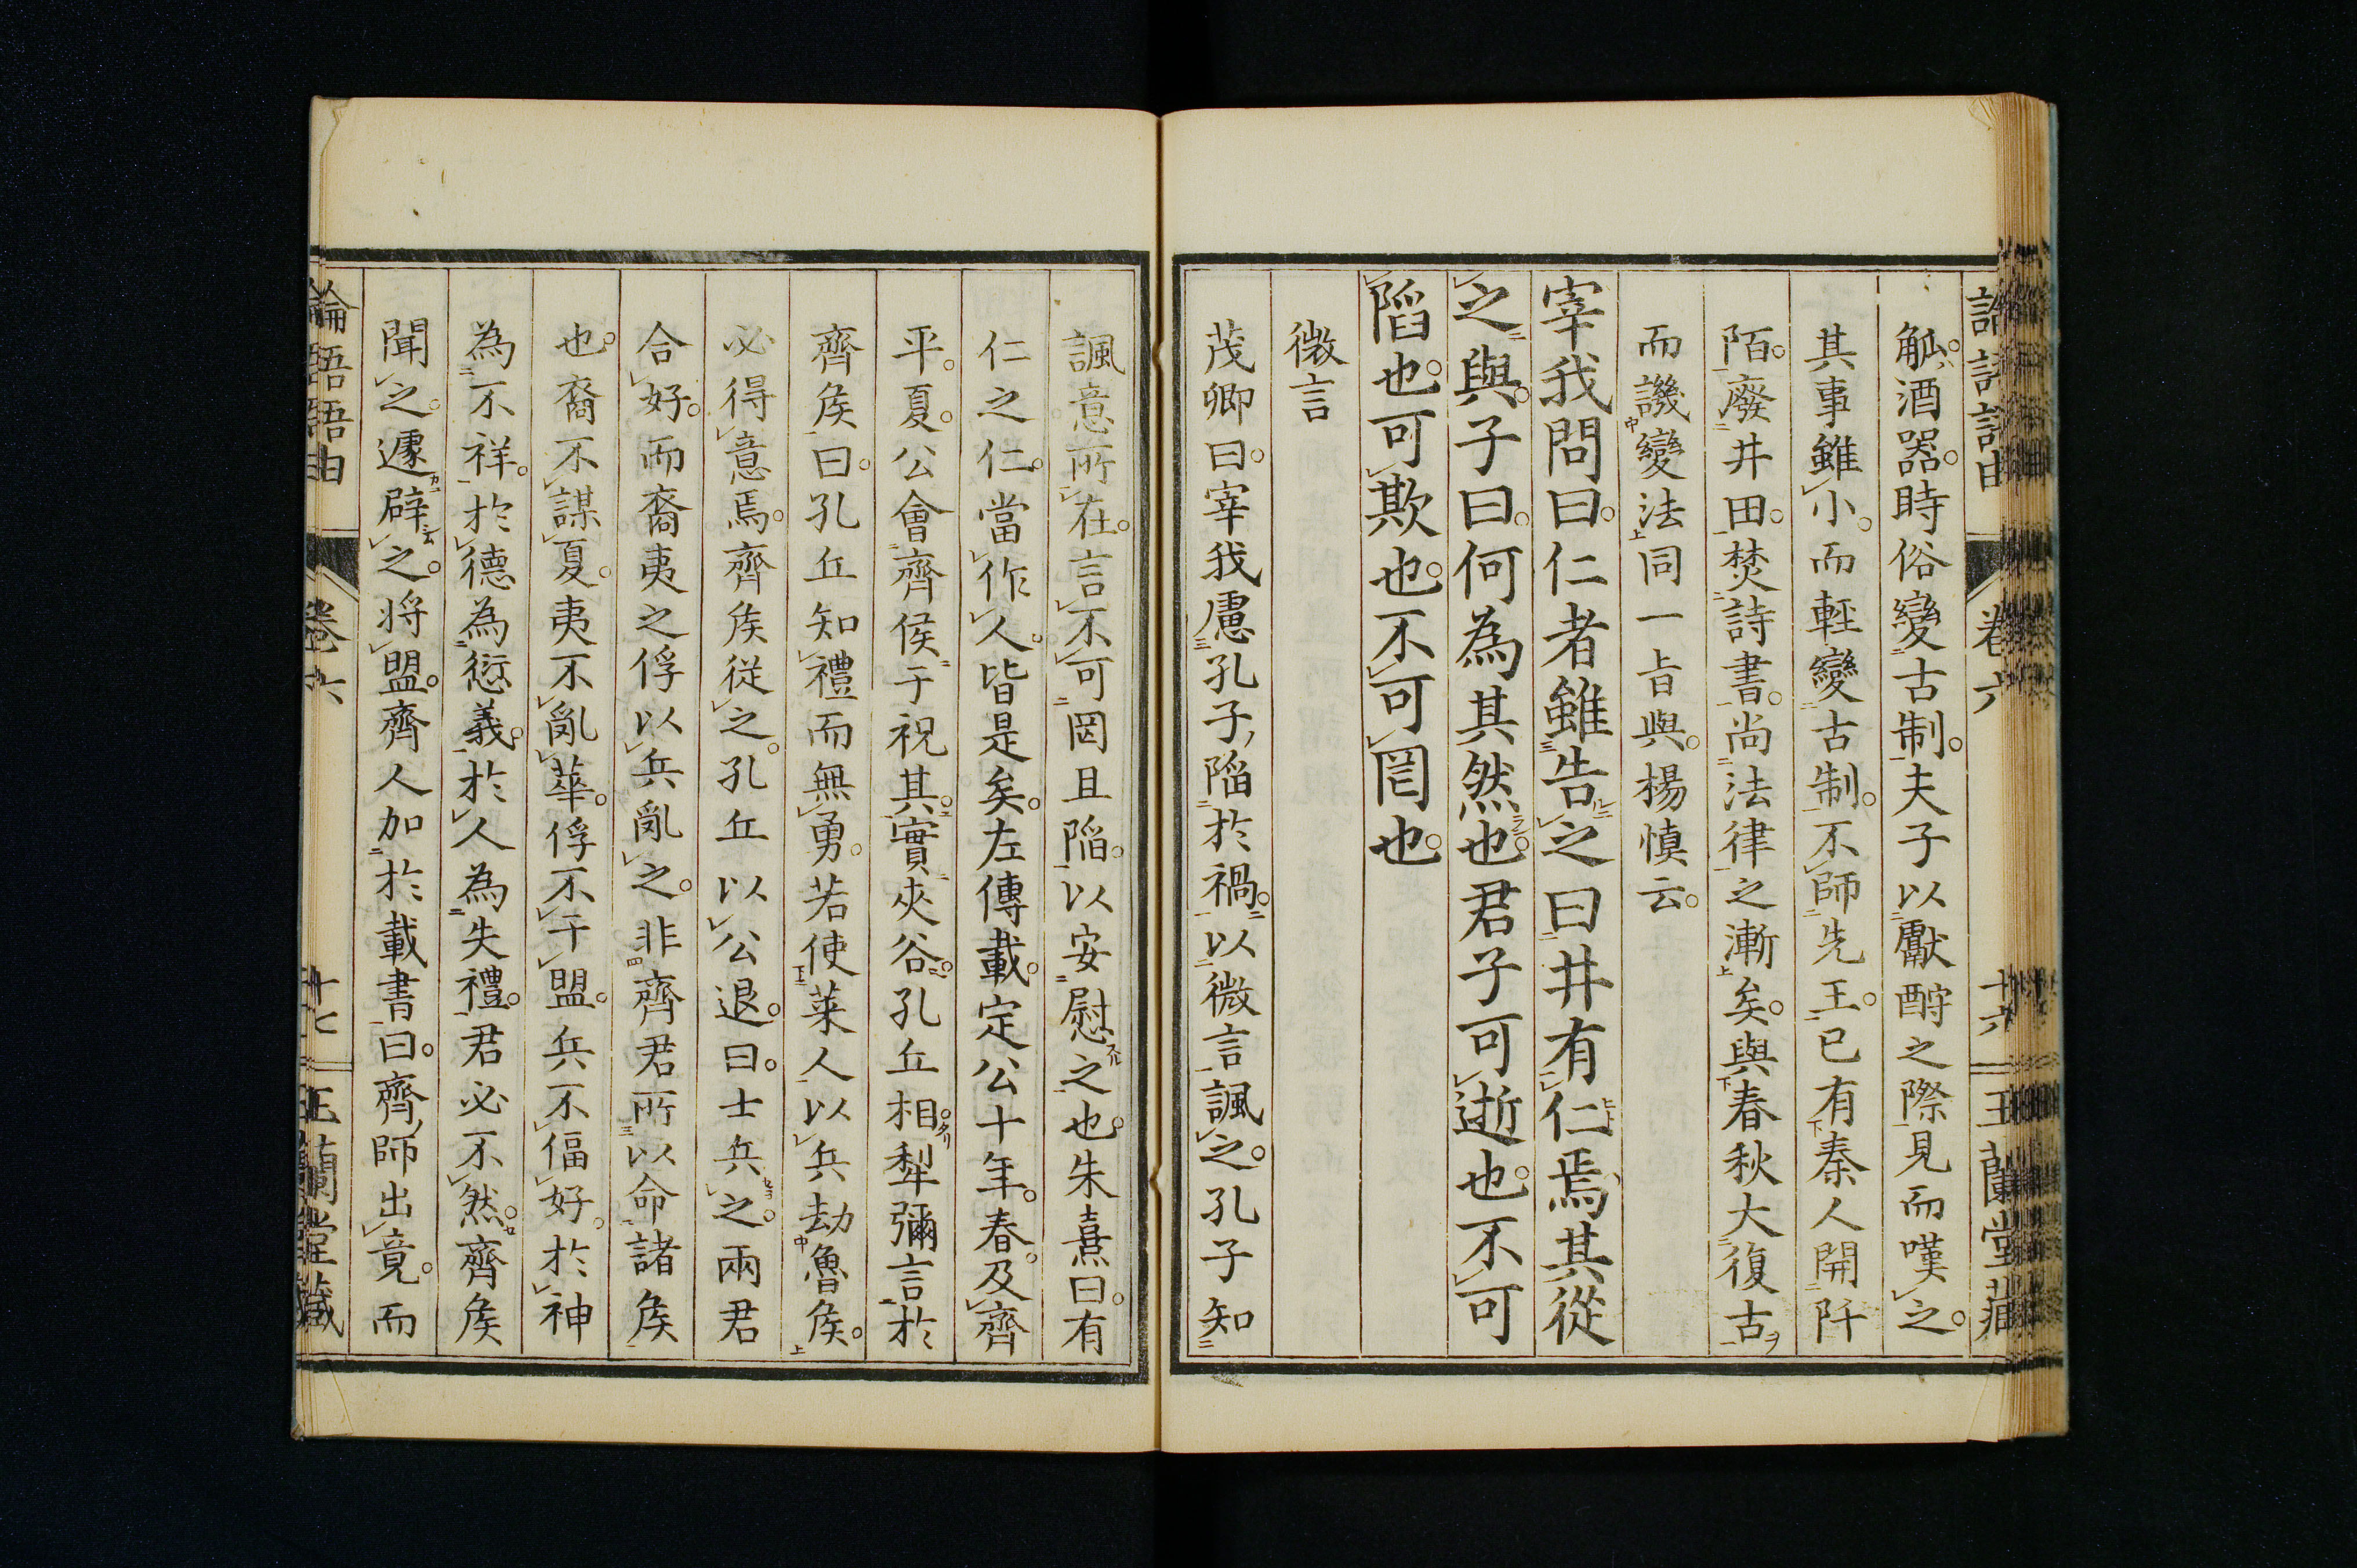 論語語由 卷六 十六 玉蘭堂藏
觚。酒器。時俗變古制。夫子以獻酧之際見而嘆之。
其事雖小。而輕變古制。不師先王。已有秦人開阡
陌。廢井田。焚詩書。尚法律之漸矣。與春秋大復古
而譏變法同一㫖與。楊慎云。
宰我問曰。仁者雖告之曰井有仁焉其從
之與。子曰。何為其然也。君子可逝也。不可
陷也。可欺也。不可罔也。
微言
茂卿曰。宰我慮孔子陷於禍。以微言諷之。孔子知
諷意所在。言不可罔且陷。以安慰之也。朱熹曰。有
仁之仁。當作人。皆是矣。左傳載。定公十年。春。及齊
平。夏。公會齊侯于祝其。實夾谷。孔丘相。犁彌言於
齊矦曰。孔丘知禮而無勇。若使萊人以兵劫魯矦。
必得意焉。齊矦從之。孔丘以公退。曰。士兵之。兩君
合好。而裔夷之俘以兵亂之。非齊君所以命諸矦
也。裔不謀夏。夷不亂華。俘不干盟。兵不偪好。於神
為不祥。於德為愆義。於人為失禮。君必不然。齊矦
聞之。遽辟之。将盟。齊人加於載書曰。齊師出竟。而
論語語由 卷六 十七 玉蘭堂藏